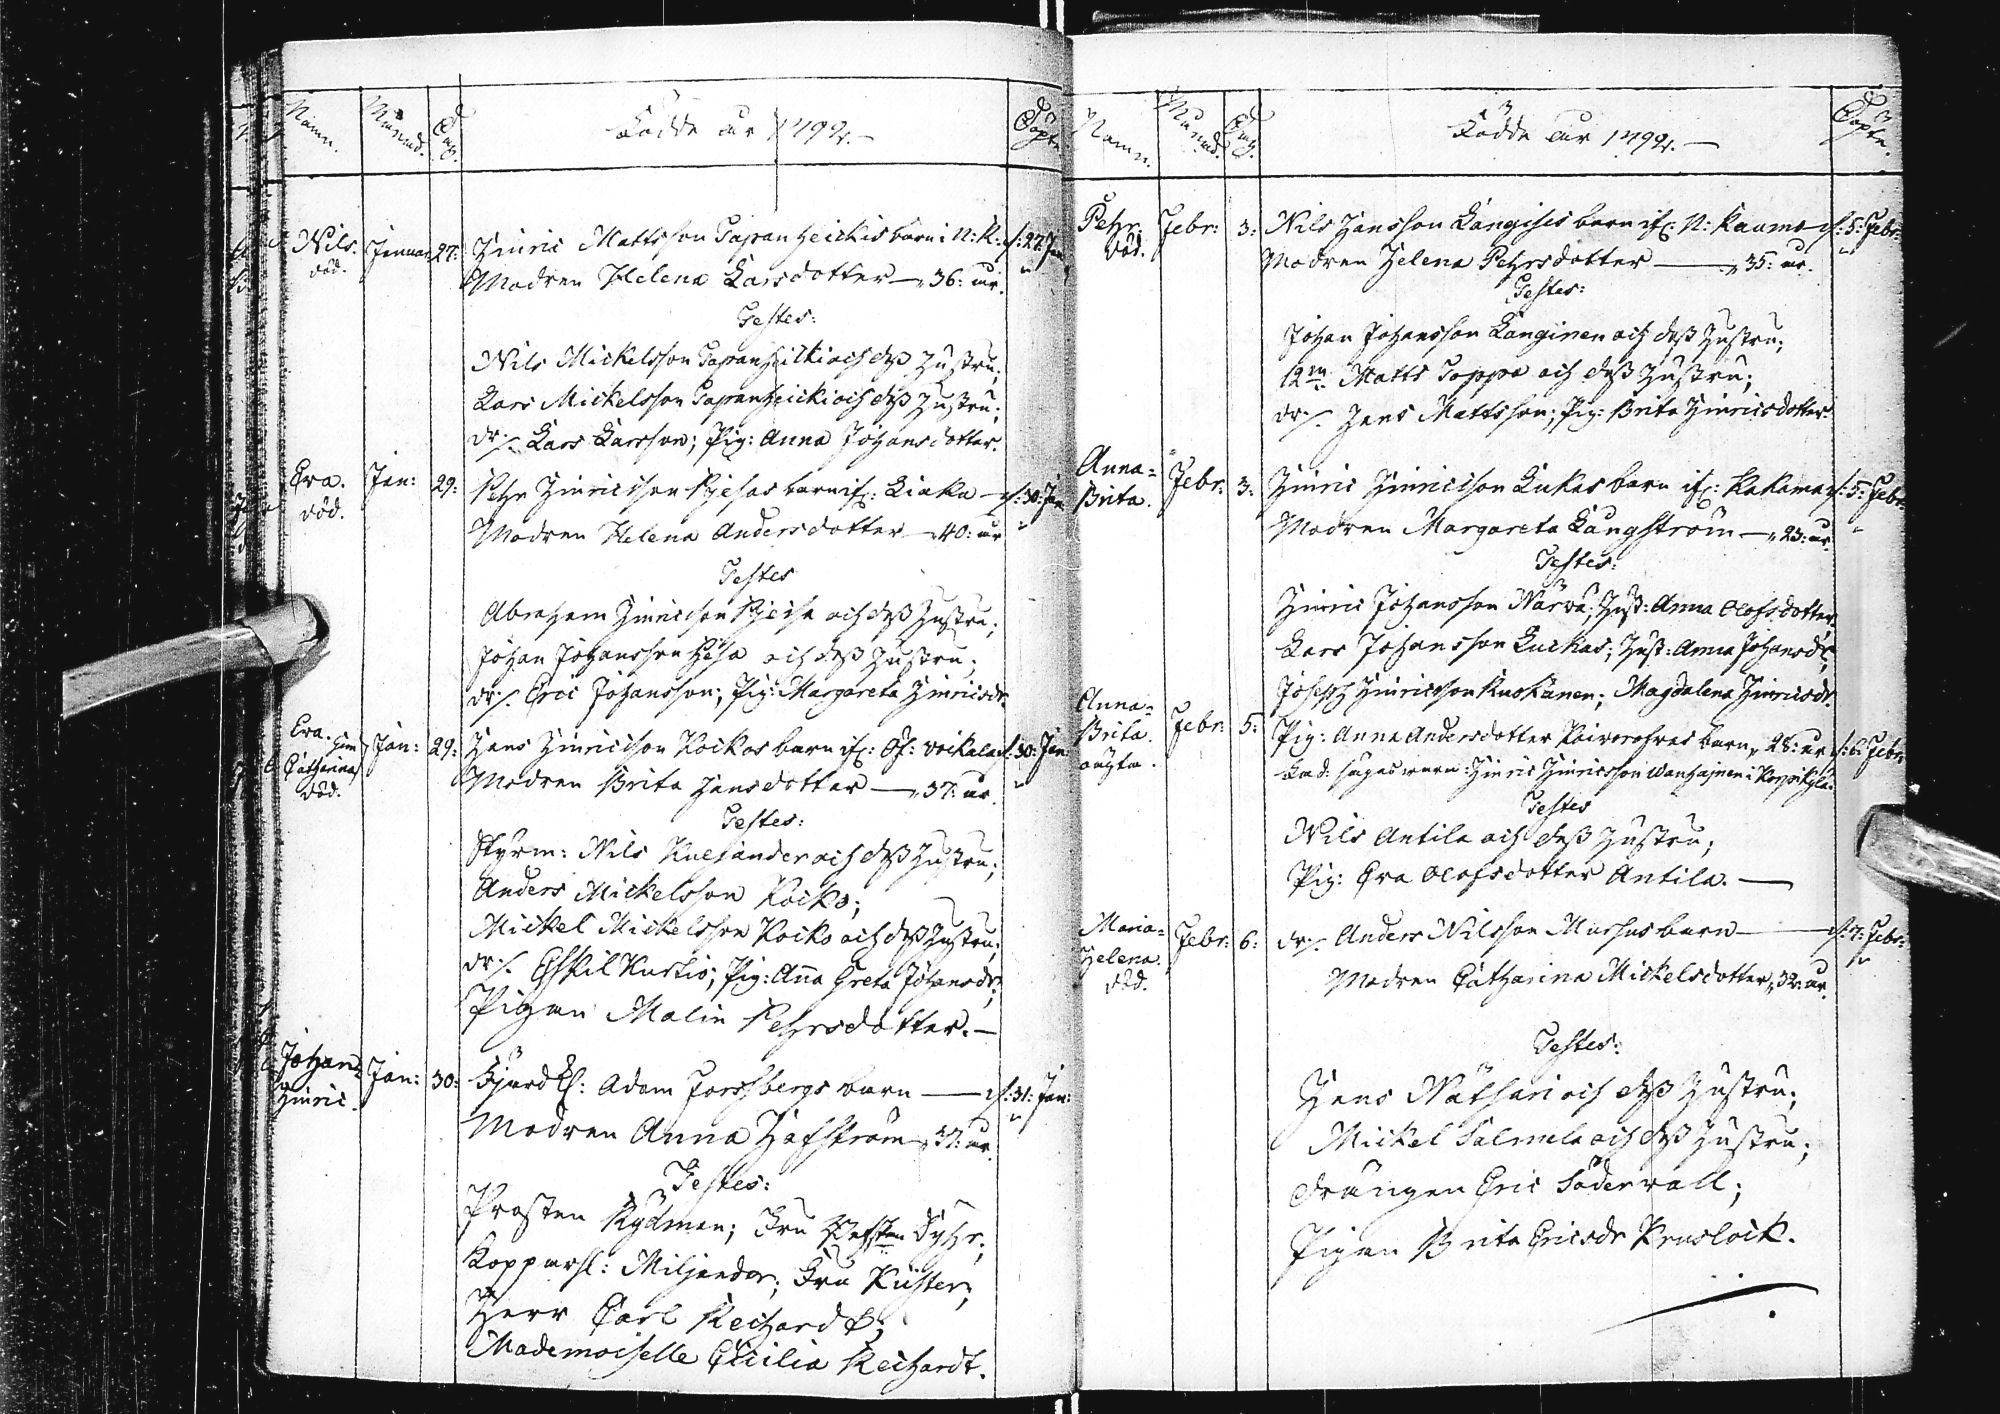 Namn. Månad. Dag. Födde år 1792. — Döpte.
Nils. Januar: 27: Hinric Mattsson Tapanheickis barn i N: K: d: 27: Jan:
död. Modren Helena Larsdotter — 36: år.
Testes:
Nils Mickelsson Tapanheicki och dess hustru;
Lars Mickelsson Tapanheicki och dess hustru;
dr:/. Lars Larsson; Pig: Anna Johansdotter.
Eva. Jan: 29: Pehr Hinricsson barn if: Liaka — d: 30: Jan:
död. Modren Helena Andersdotter — 40: år
Testes
Abraham Hinricsson och dess hustru;
Johan Johansson och dess hustru;
dr:/. Eric Johansson; Pig: Margareta Hinricsdr.
Eva. Jan: 29: Hans Hinricsson Koikos barn if: Öf: Voikala d: 30: Jan:
Catharina
död. Modren Brita Hansdotter — 37: år.
Testes:
Styrm: Nils och dess hustru;
Anders Mickelsson Koiko;
Mickel Mickelsson Koiko och dess hustru;
dr:/. Eskil Kurkio; Pig: Anna Greta Johansdr;
Pigan Malin Pehrsdotter. —
Johan Jan: 30: Adam Forssbergs barn — d: 31: Jan:
Hinric. Modren Anna Hofström 37: år.
Testes:
Prosten Rydman; Fru Dyhr;
Kopparsl: Miljander; Fru Küster;
Herr Carl Reichardt;
Mademoiselle Cecilia Reichardt.
Namn. Månad. Dag. Födde år 1792. — Döpte.
Pehr. Febr: 3: Nils Hansson Langises barn if: N: Raumo d: 5: Febr:
död. Modren Helena Pehrsdotter — 35: år.
Testes:
Johan Johansson Langinen och dess hustru;
12m: Matts Toppa och dess hustru;
dr:/. Hans Mattsson; Pig: Brita Hinricsdotter
Anna= Febr: 3: Hinric Hinricsson Lukas barn if: Kakama d: 5: Febr:
Brita. Modren Margareta Långström — 23: år.
Testes:
Hinric Johansson Närvä; Hust: Anna Olofsdotter,
Lars Johansson Luckas; Hust: Anna Johansdr;
Joseph Hinricsson Ruskanen; Magdalena Hinricsdr.
Anna= Febr: 5: Pig: Anna Andersdotter barn, 28: år d: 6: Febr:
Brita.
oägta. säges vara: Hinric Hinricsson Wanhainen i Korpikylä:
Testes
Nils Antila och dess hustru;
Pig: Eva Olofsdotter Antila. —
Maria= Febr: 6: dr:/. Anders Nilsson barn — d: 7: Febr:
Helena.
död. Modren Catharina Mickelsdotter, 32: år.
Testes:
Hans och dess hustru;
Mickel Salmela och dess hustru;
drängen Eric Söderwall;
Pigan Brita Ericsdr